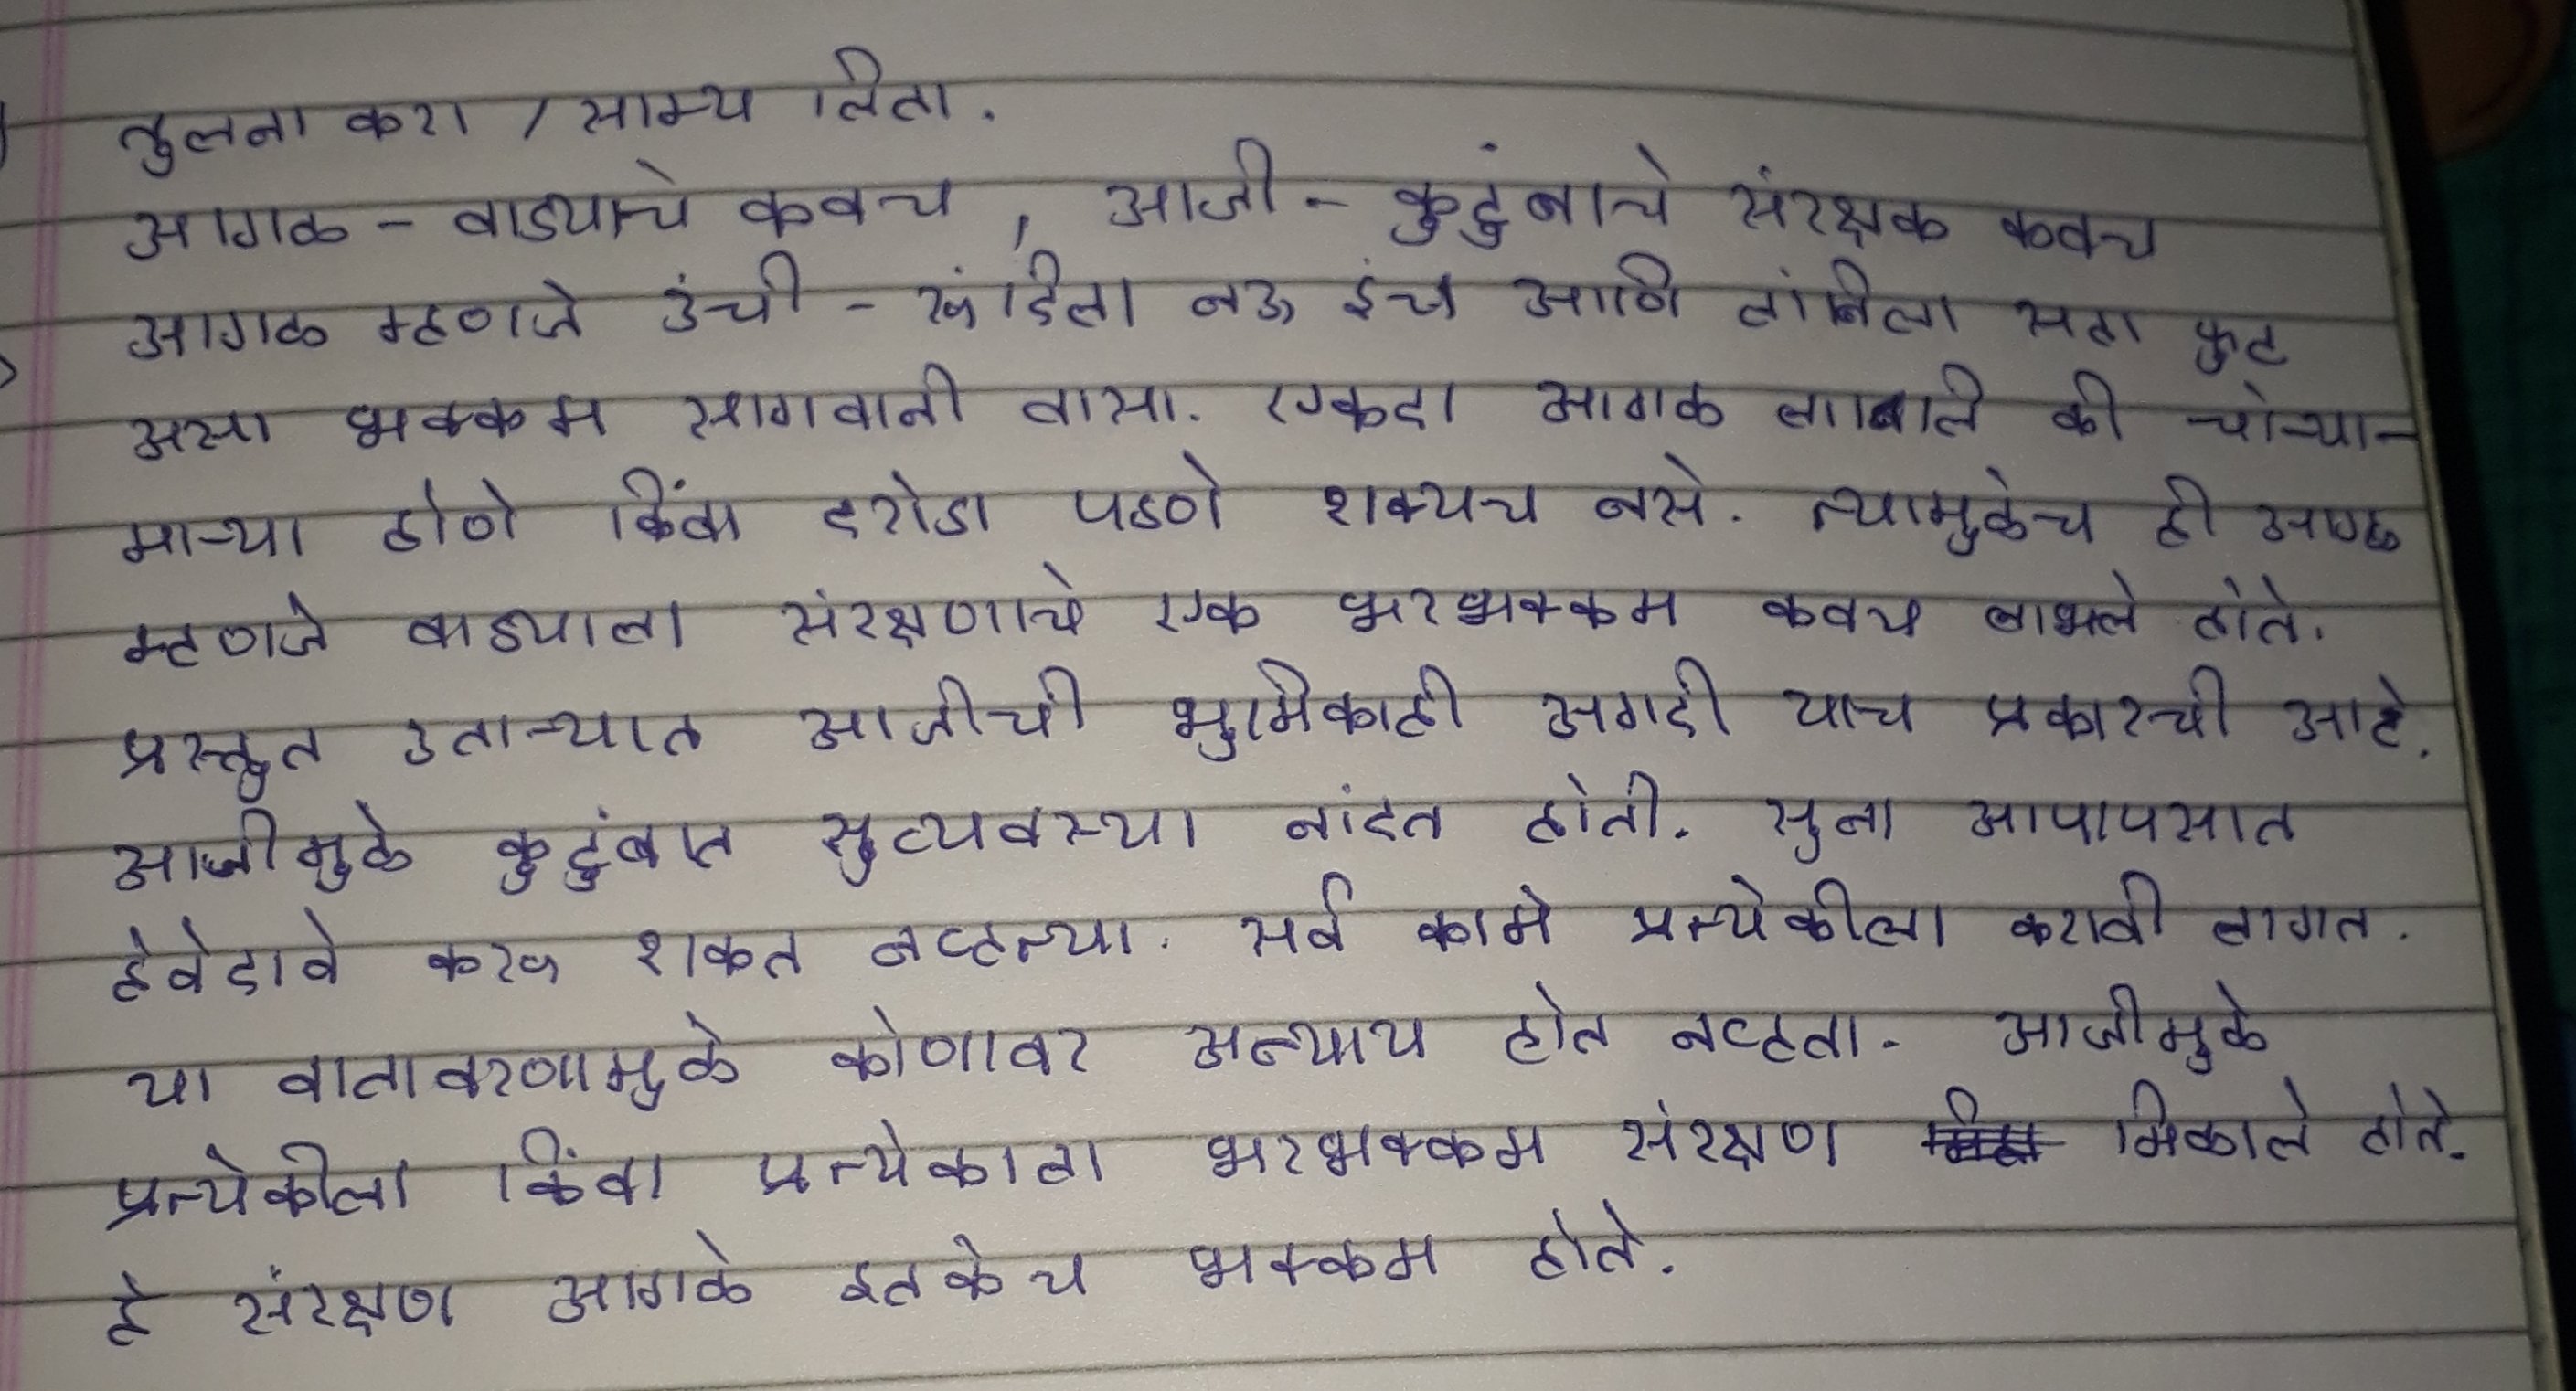 तुलना करा / साम्य लिहा.
आगळ - वाड्याचे कवच, आजी - कुटुंबाचे संरक्षक कवच
आगळ म्हणजे उंची - रुंदीला नऊ इंच आणि लांबीला सहा फुट
असा भक्कम सागवानी वासा. एकदा आगळ लावले की चोऱ्या-
माऱ्या होणे किंवा दरोडा पडणे शक्यच नसे. त्यामुळेच ही आगळ
म्हणजे वाड्याला संरक्षणाचे एक भरभक्कम कवच लाभले होते.
प्रस्तुत उताऱ्यात आजीची भुमिकाही अगदी याच प्रकारची आहे.
आजीमुळे कुटुंबात सुव्यवस्था नांदत होती. सुना आपापसात
हेवेदावे करू शकत नव्हत्या. सर्व कामे प्रत्येकीला करावी लागत.
या वातावरणामुळे कोणावर अन्याय होत नव्हता. आजीमुळे
प्रत्येकीला किंवा प्रत्येकाला भरभक्कम संरक्षण मिळाले होते.
हे संरक्षण आगळे इतकेच भक्कम होते.